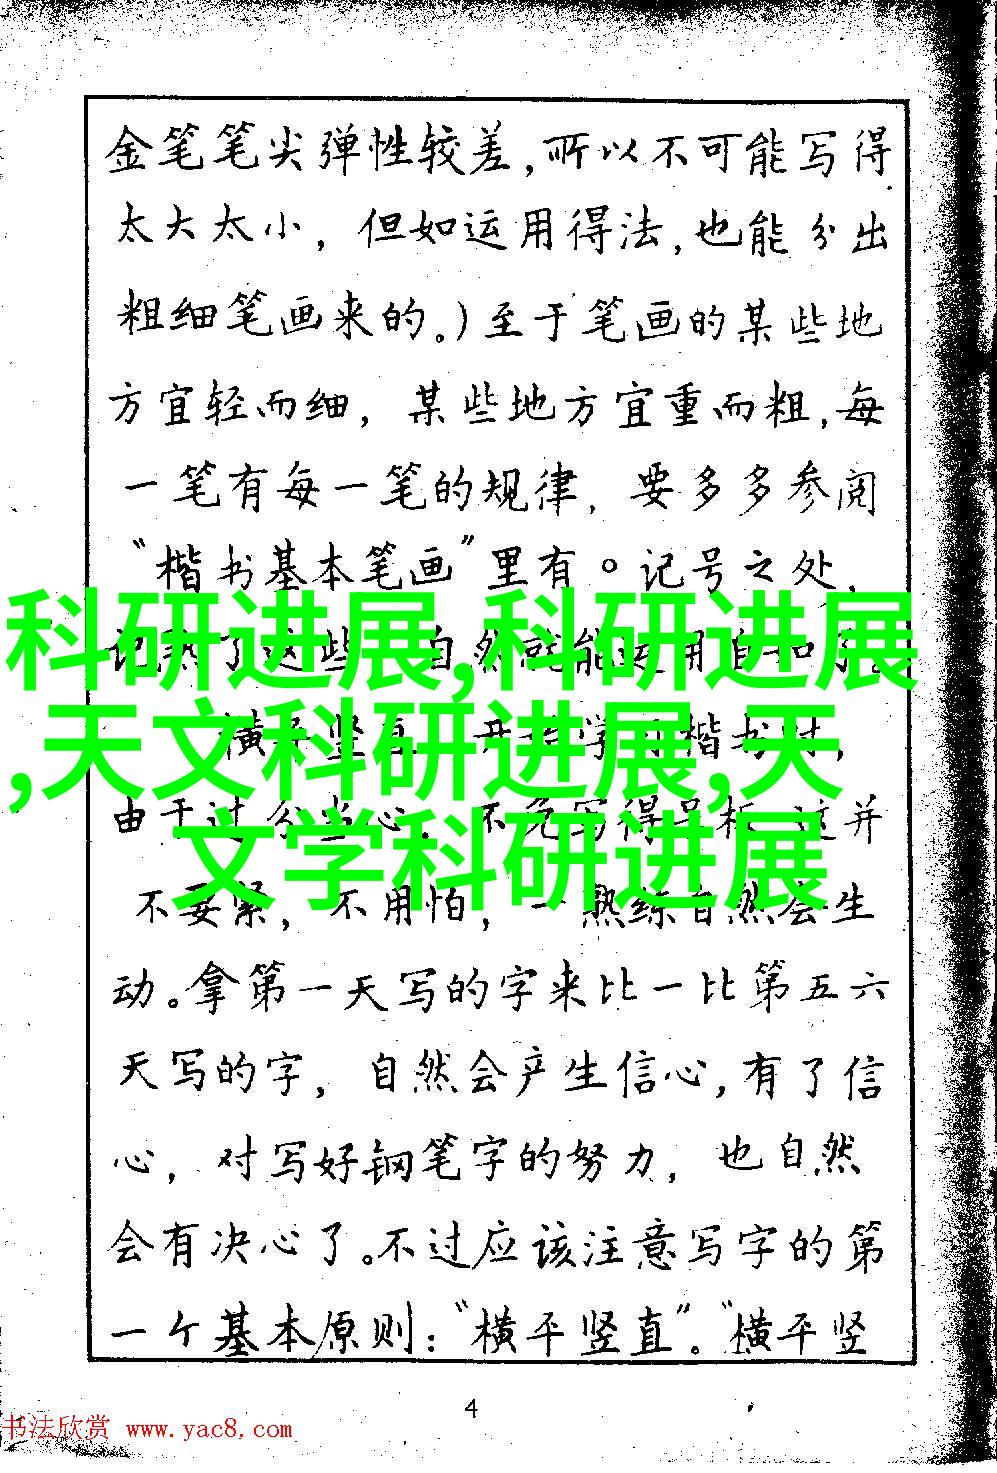 金笔笔尖弹性较差,所以不可能写得
太大太小，但如运用得法,也能分出
粗细笔画来的。)至于笔画的某些地
方宜轻而细，某些地方宜重而粗,每
一笔有每一笔的规律，要多多参阅
“楷书基本笔画”里有。记号之处，
记熟了这些 自然就能运用自如了。
横平竖直 开 学 楷书时，
由于过分当心，不免写得呆板 这并
不要紧，不用怕，一熟练自然会生
动。拿第一天写的字来比一比第五六
天写的字，自然会产生信心,有了信
心，对写好钢笔字的努力，也自然
会有决心了。不过应该注意写字的第
一个基本原则：“横平竖直”。“横平竖
科研进展,科研进展
,天文科研进展,天
文学科研进展
4
书法欣赏 www.yac8.com